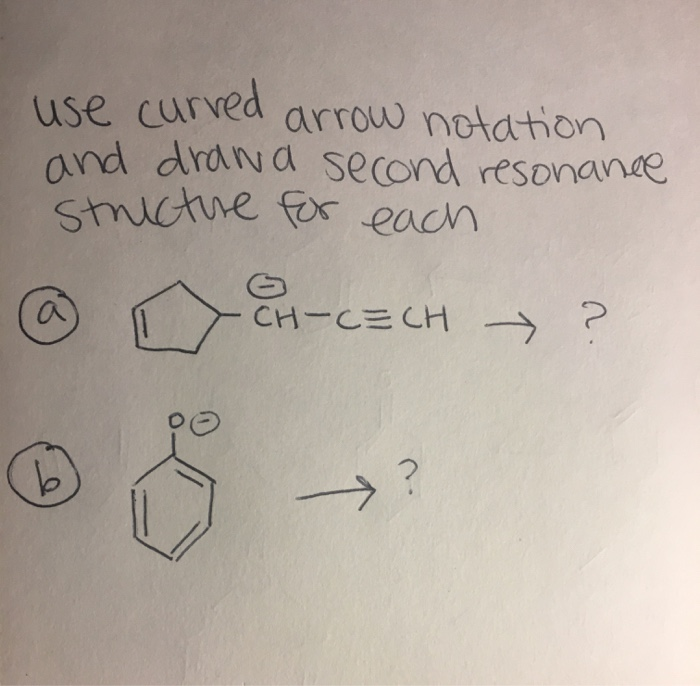 use curved arrow notation
and draw a second resonance
structure for each
a
⊖
CH-C≡CH → ?
O⊖
b → ?